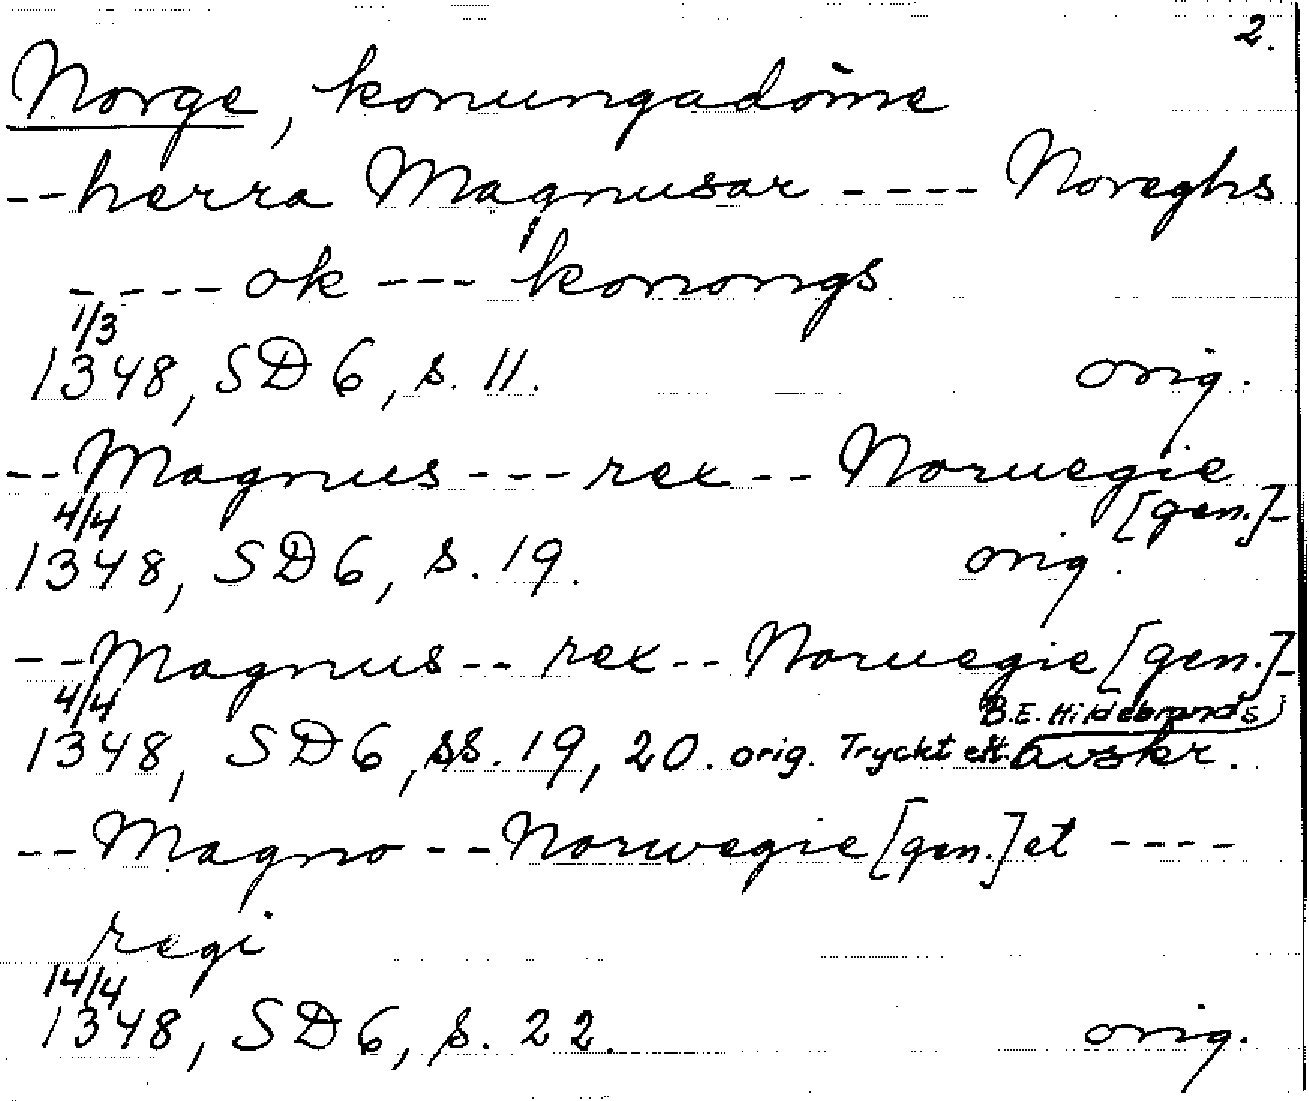 2.
Norge, konungadöme
--herra Magnusar ---- Noreghs
---- ok --- konongs
1/3
1348, SD 6, s. 11. orig.
--Magnus --- rex -- Noruegie
[gen.]-
4/4
1348, SD 6, s. 19. orig.
--Magnus -- rex -- Noruegie [gen.]-
4/4
B.E. Hildebrands
1348, SD 6, ss. 19, 20. orig. Tryckt eft. avskr.
--Magno --Norwegie [gen.] et ----
regi
14/4
1348, SD 6, s. 22. orig.